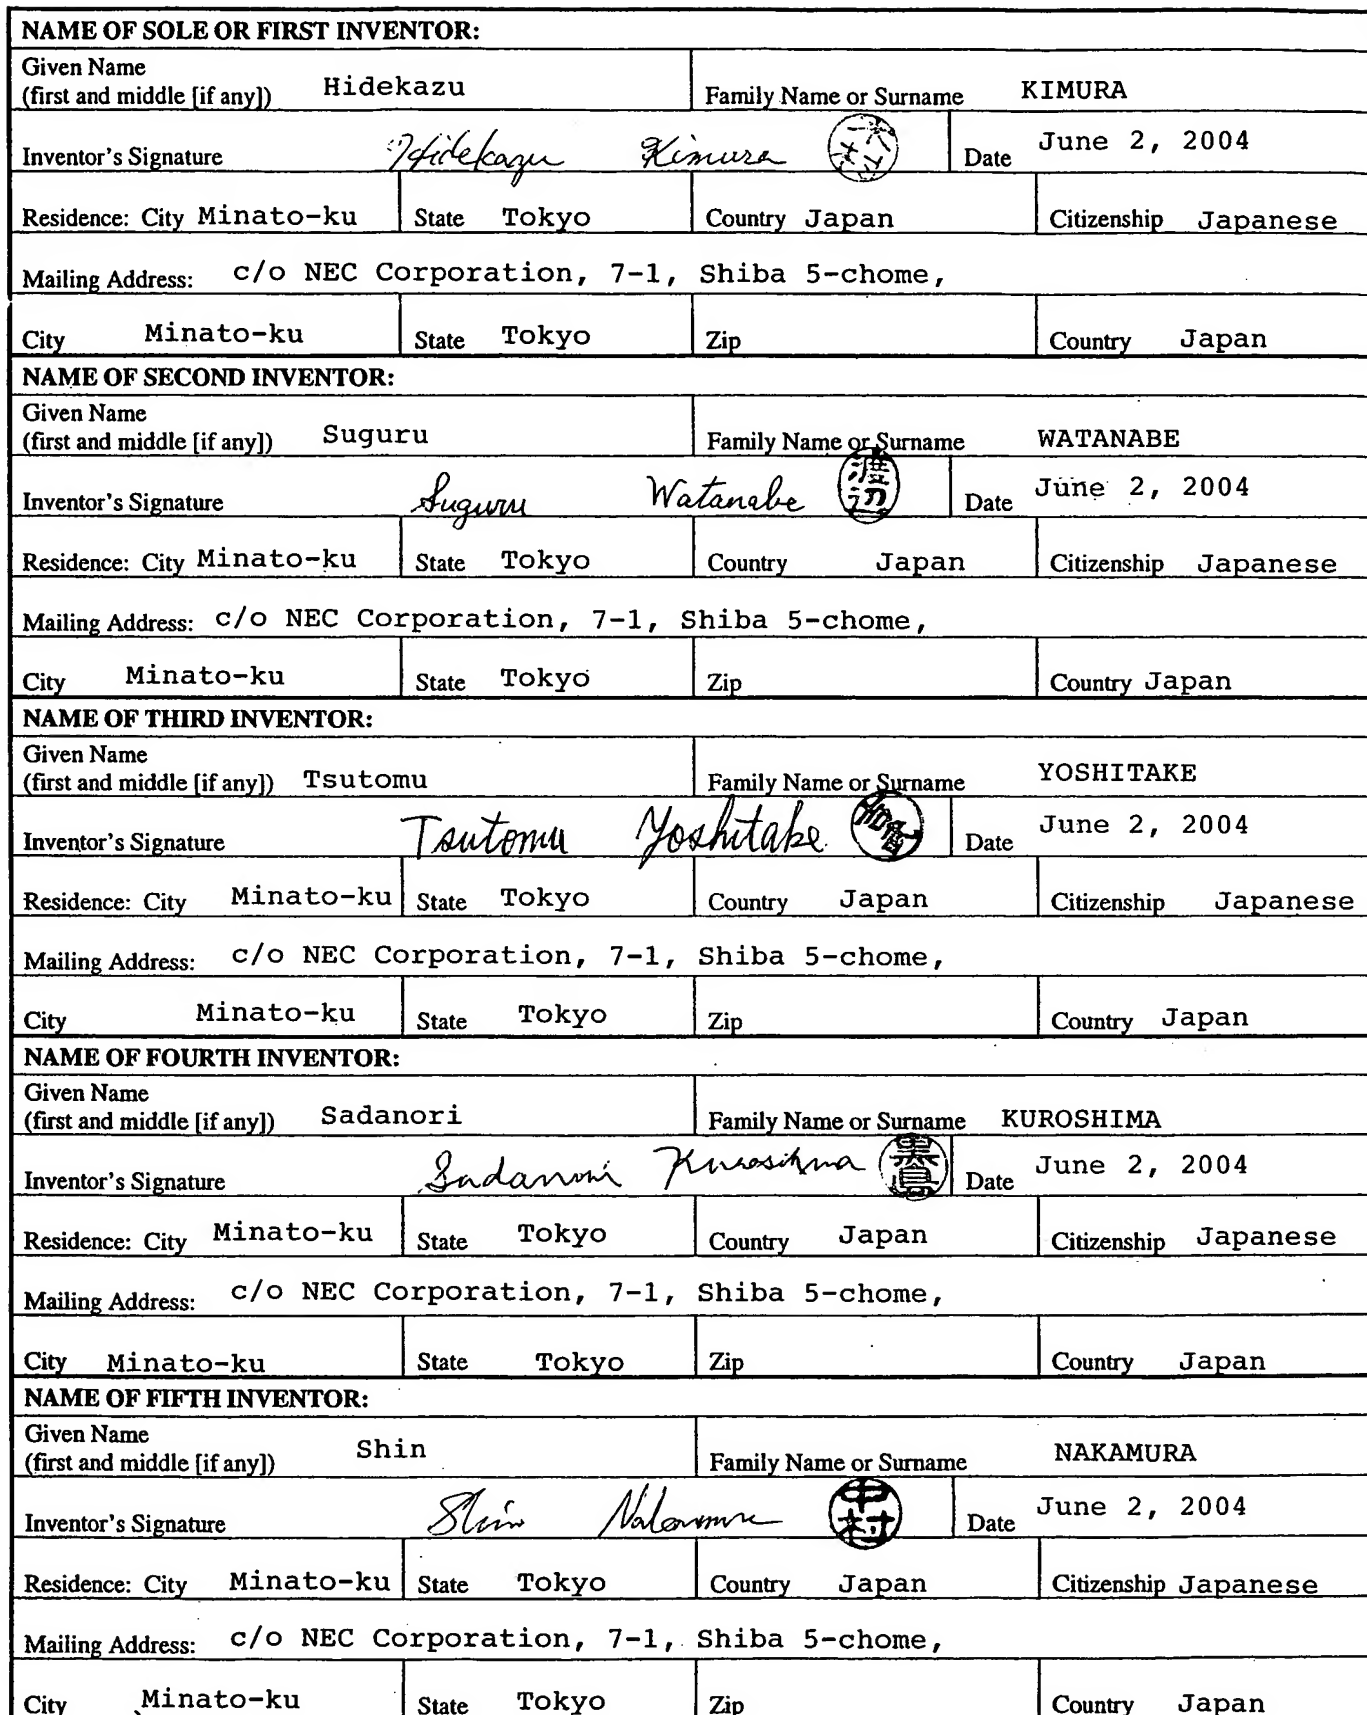 NAME OF SOLE OR FIRST INVENTOR:
Given Name
(first and middle [if any]) Hidekazu Family Name or Surname KIMURA
Inventor's Signature Hidekazu Kimura 木村 Date June 2, 2004
Residence: City Minato-ku State Tokyo Country Japan Citizenship Japanese
Mailing Address: c/o NEC Corporation, 7-1, Shiba 5-chome,
City Minato-ku State Tokyo Zip Country Japan
NAME OF SECOND INVENTOR:
Given Name
(first and middle [if any]) Suguru Family Name or Surname WATANABE
Inventor's Signature Suguru Watanabe 渡辺 Date June 2, 2004
Residence: City Minato-ku State Tokyo Country Japan Citizenship Japanese
Mailing Address: c/o NEC Corporation, 7-1, Shiba 5-chome,
City Minato-ku State Tokyo Zip Country Japan
NAME OF THIRD INVENTOR:
Given Name
(first and middle [if any]) Tsutomu Family Name or Surname YOSHITAKE
Inventor's Signature Tsutomu Yoshitake Date June 2, 2004
Residence: City Minato-ku State Tokyo Country Japan Citizenship Japanese
Mailing Address: c/o NEC Corporation, 7-1, Shiba 5-chome,
City Minato-ku State Tokyo Zip Country Japan
NAME OF FOURTH INVENTOR:
Given Name
(first and middle [if any]) Sadanori Family Name or Surname KUROSHIMA
Inventor's Signature Sadanori Kuroshima 黒島 Date June 2, 2004
Residence: City Minato-ku State Tokyo Country Japan Citizenship Japanese
Mailing Address: c/o NEC Corporation, 7-1, Shiba 5-chome,
City Minato-ku State Tokyo Zip Country Japan
NAME OF FIFTH INVENTOR:
Given Name
(first and middle [if any]) Shin Family Name or Surname NAKAMURA
Inventor's Signature Shin Nakamura 中村 Date June 2, 2004
Residence: City Minato-ku State Tokyo Country Japan Citizenship Japanese
Mailing Address: c/o NEC Corporation, 7-1, Shiba 5-chome,
City Minato-ku State Tokyo Zip Country Japan